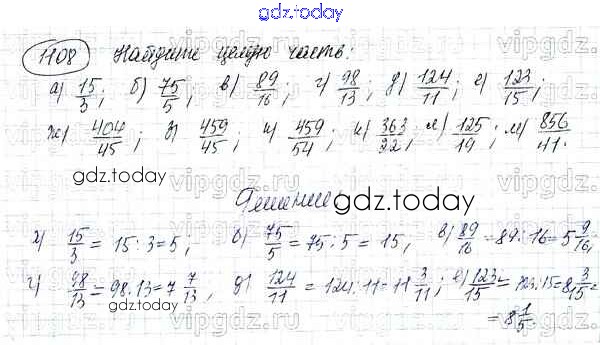 gdz.today
1108 Найдите целую часть:
а) 15/3; б) 75/5; в) 89/16; г) 98/13; д) 124/11; е) 123/15;
ж) 404/45; з) 459/45; и) 459/54; к) 363/22; л) 125/19; м) 856/11.
gdz.today
Решение
gdz.today
а) 15/3 = 15:3=5, б) 75/5 = 75:5 = 15, в) 89/16 = 89:16=5 9/16,
г) 98/13 = 98:13=7 7/13, д) 124/11 = 124:11=11 3/11; е) 123/15 = 123:15=8 3/15=
= 8 1/5.